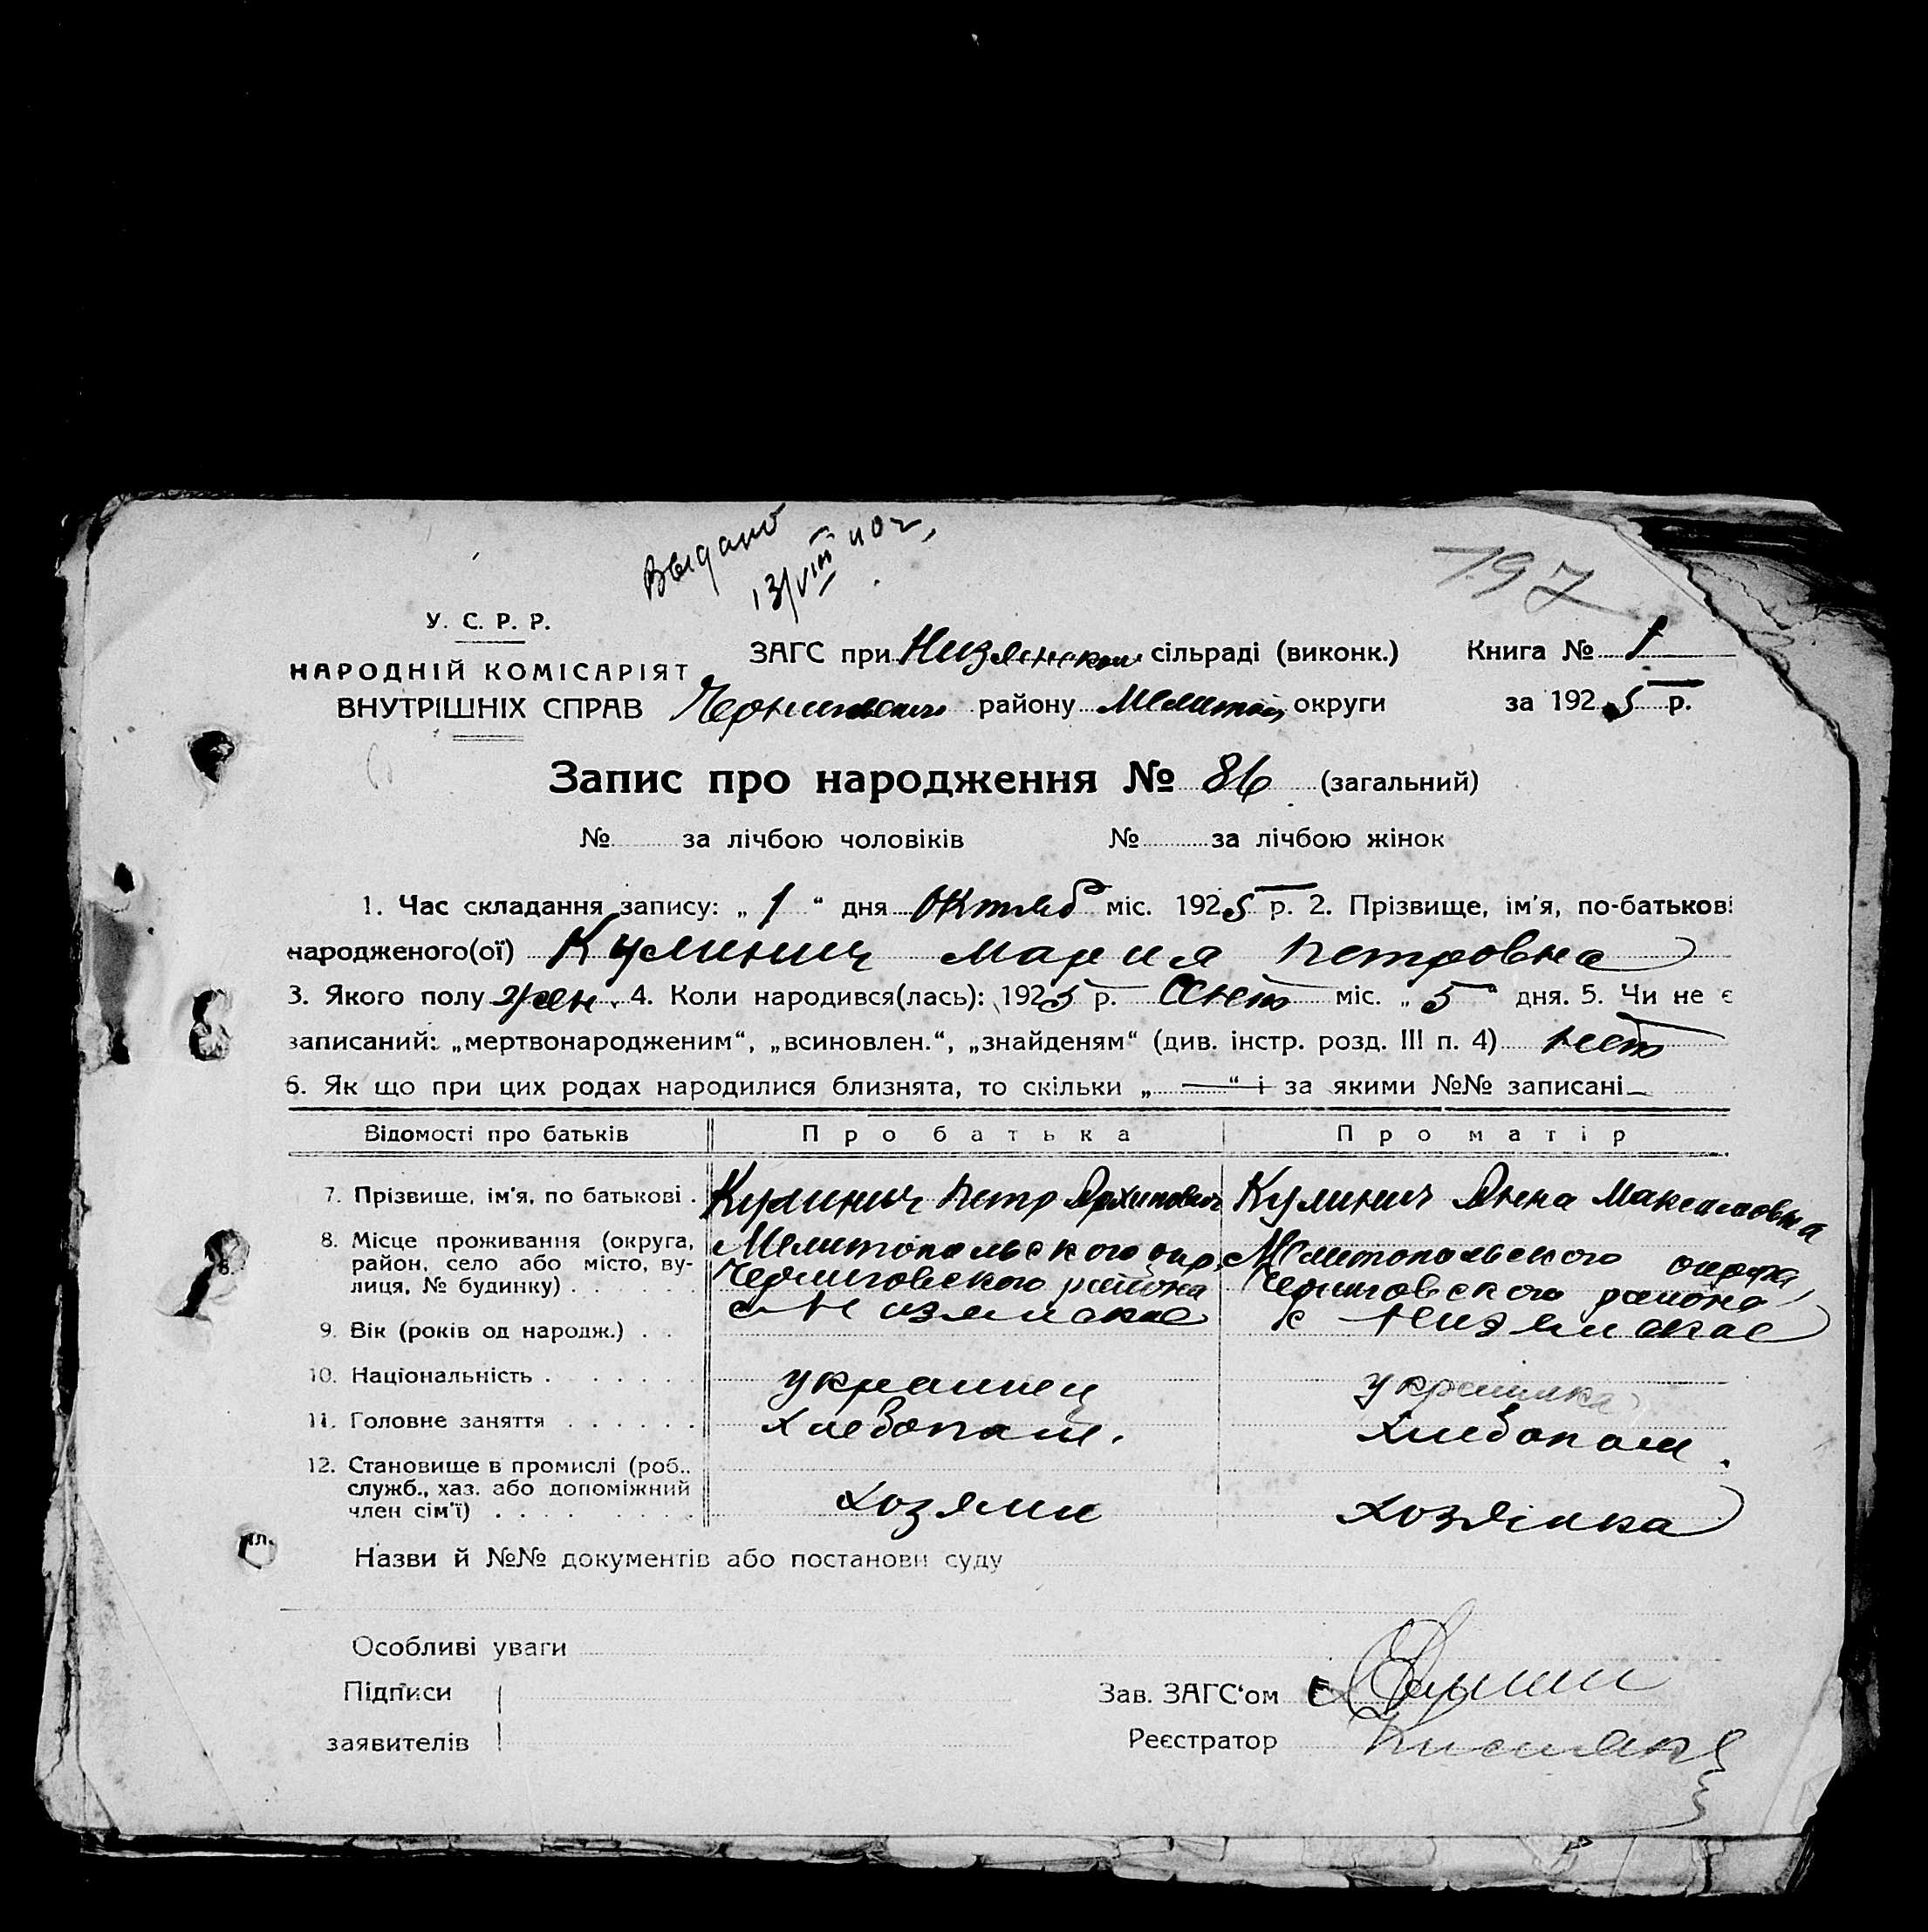 Выдано
13/VIII 40 г.
197
У. С. Р. Р.
НАРОДНІЙ КОМІСАРІЯТ
ВНУТРІШНІХ СПРАВ
ЗАГС при Низянской сільраді (виконк.)
района Мелитоп округи
Книга № 1
за 1925 р.
Запис про народження № 86 (загальний)
№ за лічбою чоловіків № за лічбою жінок
1. Час складання запису: „ 1 “ дня Октяб міс. 1925 р. 2. Прізвище, ім'я, по-батькові
народженого(ої) Кулинич Мария Петровна
3. Якого полу жен. 4. Коли народився(лась): 1925 р. міс. „ 5 “ дня. 5. Чи не є
записаний: „мертвонародженим“, „всиновлен.“, „знайденям“ (див. інстр. розд. III п. 4) нет
6. Як що при цих родах народилися близнята, то скільки „ — “ і за якими №№ записані —
Відомості про батьків Про батька Про матір
7. Прізвище, ім'я, по батькові . Кулинич Петр Архипович Кулинич Анна Максимовна
8. Місце проживання (округа, Мелитопольского окр. Мелитопольского округа,
район, село або місто, ву- Черниговского района Черниговского района
лиця, № будинку) . . . . . . с Низянское с Низянское
9. Вік (років од народж.) . .
10. Національність . . . . . . . украинец украинка
11. Головне заняття . . . . . . хлебопаш. хлебопаш.
12. Становище в промислі (роб.,
служб., хаз. або допоміжний
член сім'ї) . . . . . . . . . хозяин хозяйка
Назви й №№ документів або постанови суду
Особливі уваги
Підписи
заявителів
Зав. ЗАГС'ом
Реєстратор